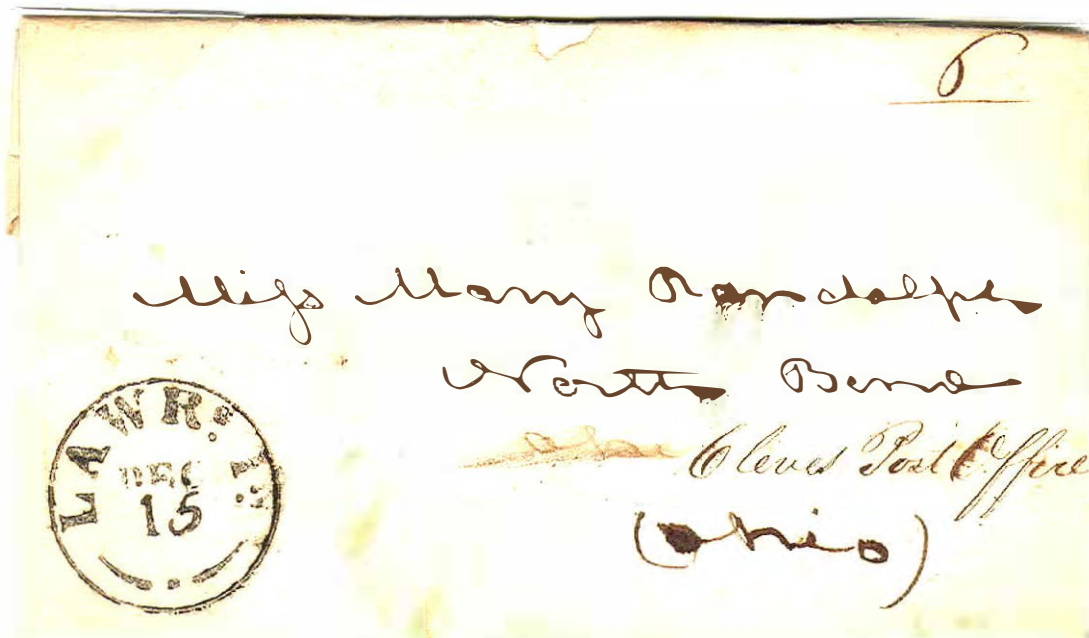 6
Miss Mary Randolph
North Bend
Cleves Post Office
(Ohio)
LAWRG. Ia.
DEC
15